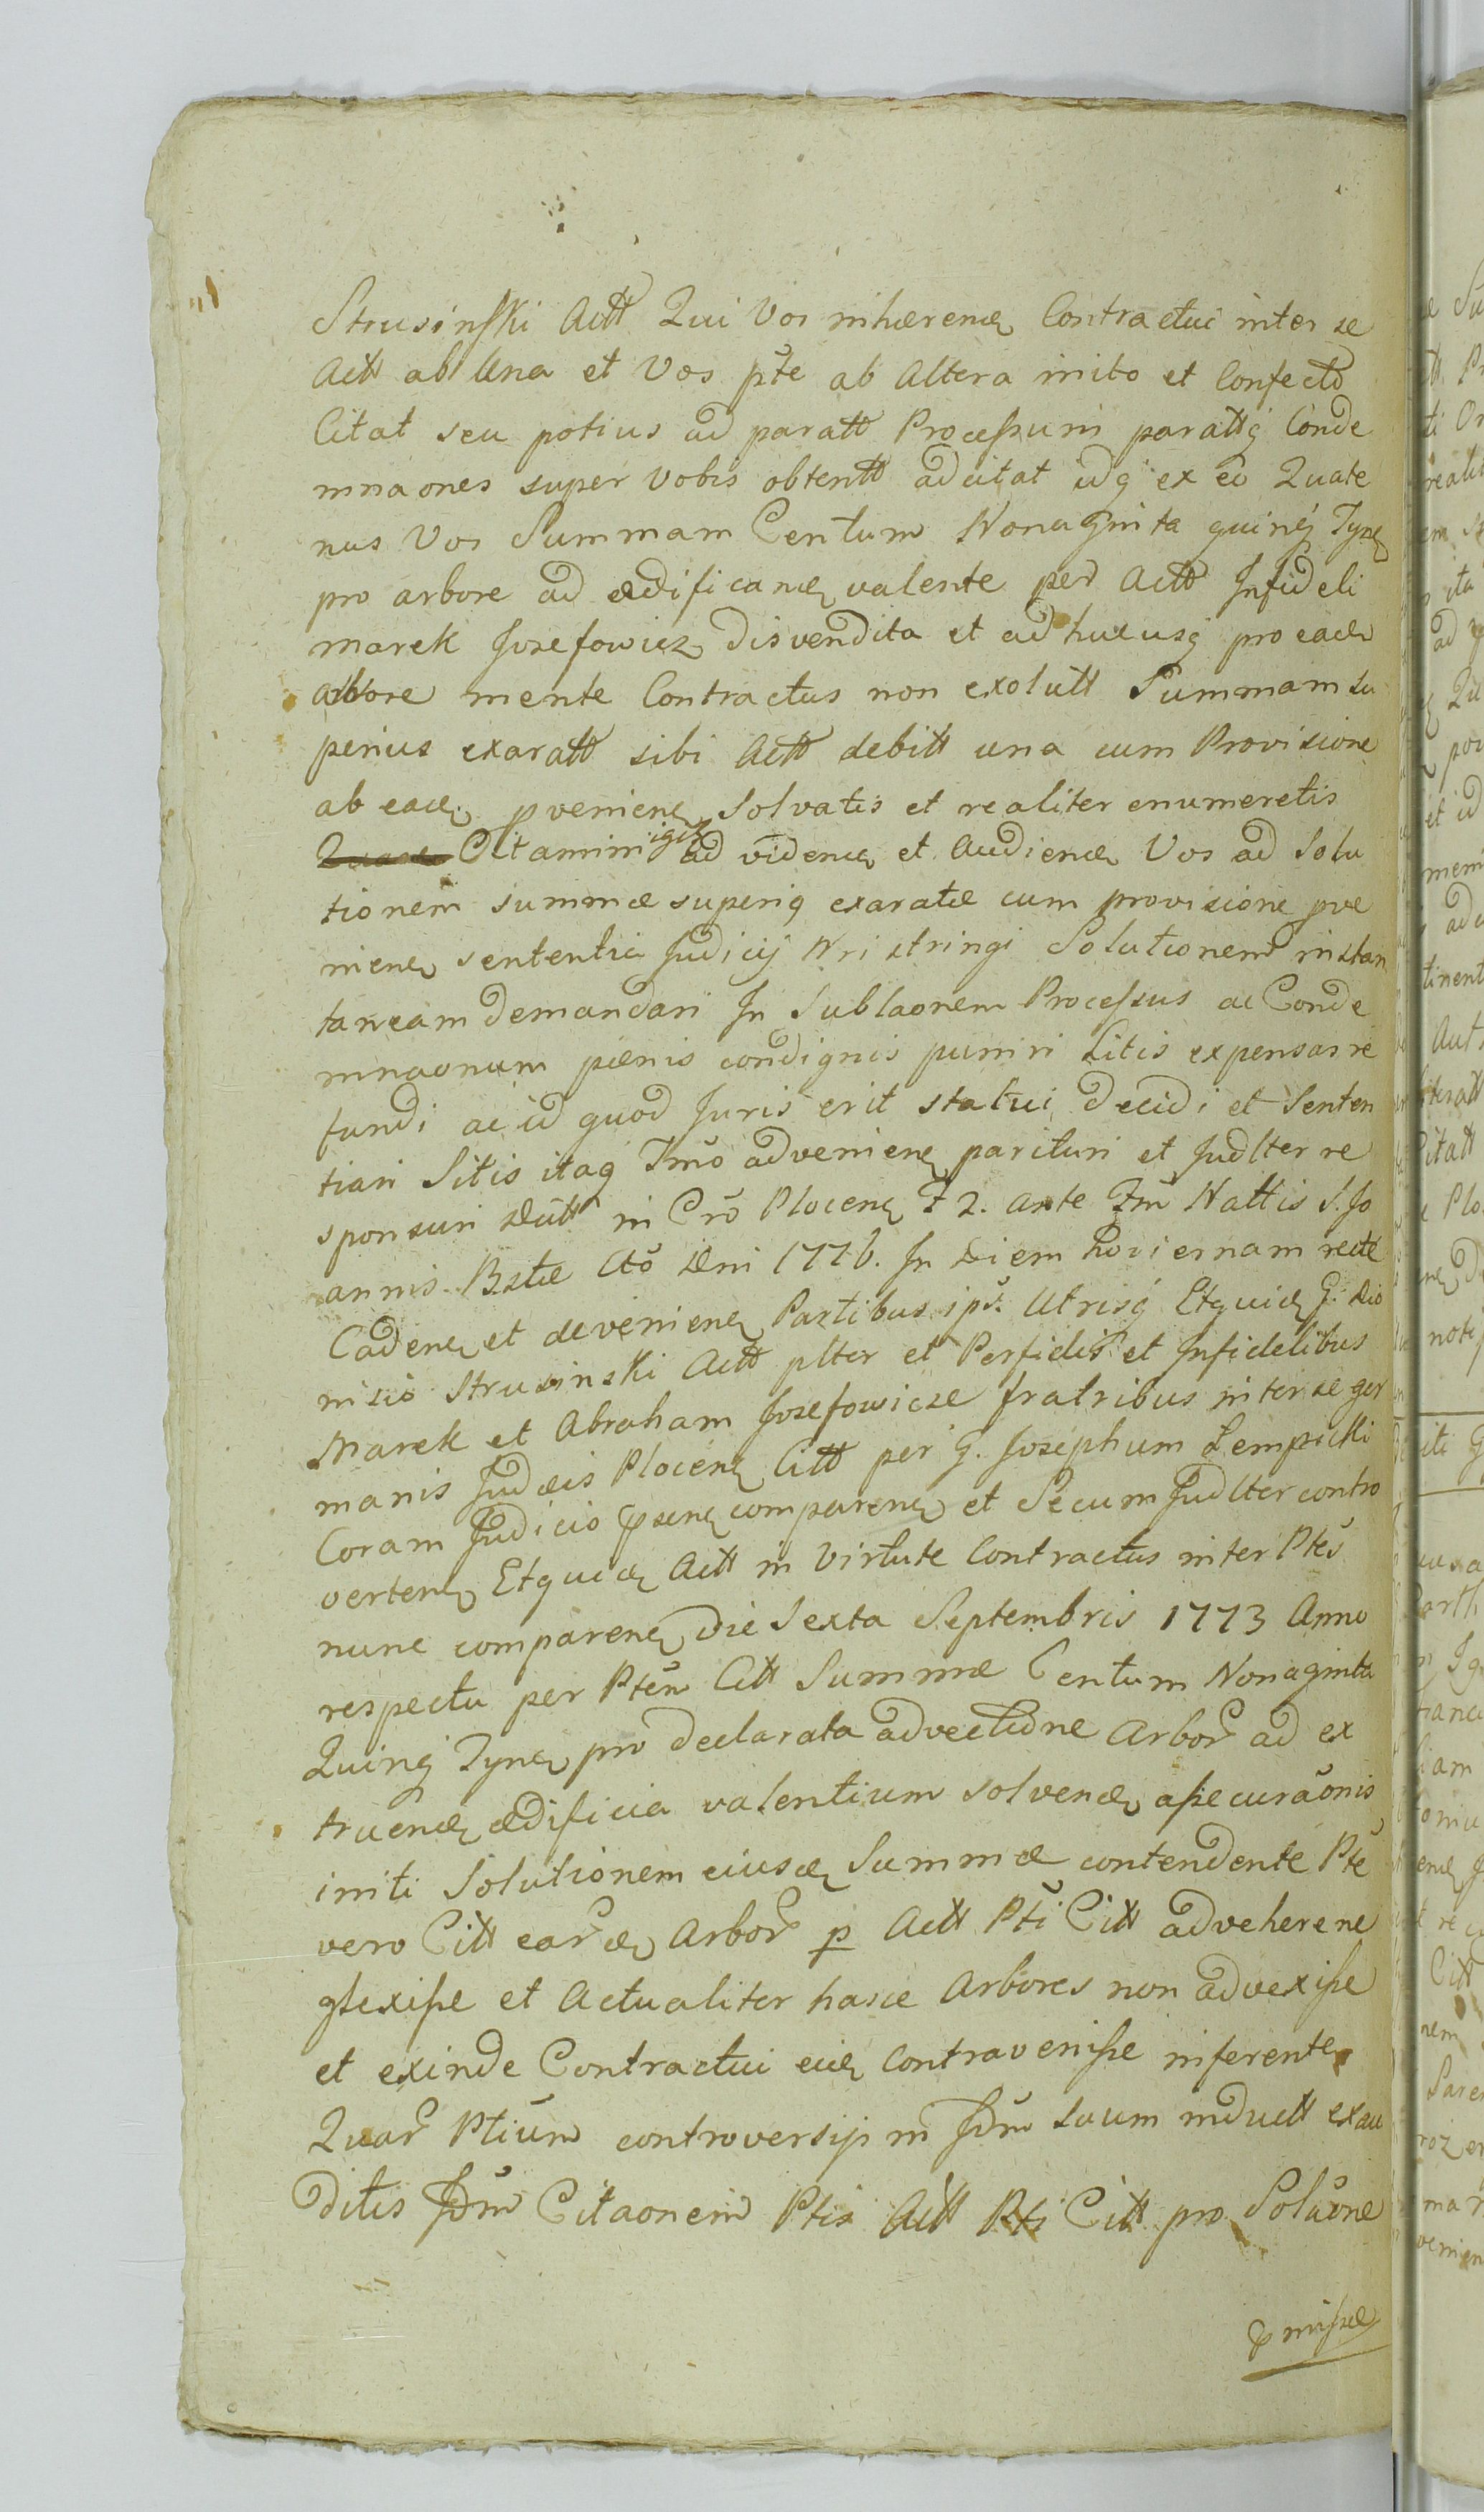 Strusinski Actt Qui Vos inhærend Contractui inter se
Actt ab Una et Vos pte ab Altera inito et Confecto
Citat seu potius ad paratt Processum parattq Conde
mnaones super Vobis obtentt adcitat idq ex eo Quate
nus Vos Summam Centum Nonaginta quinq Tynf
pro arbore ad ædificand valente per Actt Infideli
Marek Josefowicz disvendita et adhucusq pro eade
arbore mente Contractus non exolutt Summam su
perius exaratt sibi Actt debitt una cum Provisione
ab ead pvenien Solvatis et realiter enumeretis
Citamini igit ad videnda et Audiend Vos ad Solu
tionem summæ superiq exaratæ cum provisione pve
nien sententia Judicij Nri stringi Solutionem instan
taneam demandari In Sublaonem Processus ac Conde
mnaonum pænis condignis puniri Litis expensas re
fundi ac id quod Juris erit statui decidi et Senten
tiari Sitis itaq Tmo advenien parituri et Judlter re
sponsuri Datt in Cro Plocen F 2. ante Fm Nattis S. Jo
annis Bstæ Ao Dni 1776. In Diem hodiernam recte
Caden et devenien Partibus ips. Utrisq Etquid G. Dio
nisio Strusinski Actt plter et Perfidis et Infidelibus
Marek et Abraham Josefowicze fratribus inter se ger
manis Judæis Plocen Citt per G. Josephum Lempicki
Coram Judicio psen comparen et Secum Judlter contro
verten Etquid Actt in Virtute Contractus inter Ptes
nunc comparen die Sexta Septembris 1773 Anno
respectu per Ptem Citt Summæ Centum Nonaginta
Quinq Tynf pro declarata advectione Arbor ad ex
truend ædificia valentium solvend assecuraonis
initi Solutionem eiusd Summæ contendente Pte
vero Citt eard Arbor p Actt Pti Citt advehere ne
glexisse et Actualiter hasce Arbores non advexisse
et exinde Contractui eid contravenisse inferente
Quar Ptium controversijs in Jdm suum inductt exau
ditis Jdm Citaonem Ptis Actt Pti Citt pro Soluone
pmissæ